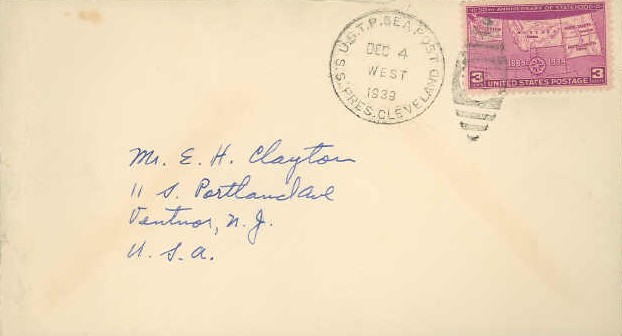 U.S.T.P. SEA POST
DEC 4
WEST
1939
S.S. PRES. CLEVELAND
50TH ANNIVERSARY OF STATEHOOD
1889 1939
3 UNITED STATES POSTAGE 3
Mr. E. H. Clayton
11 S. Portland Ave
Ventnor, N. J.
U. S. A.